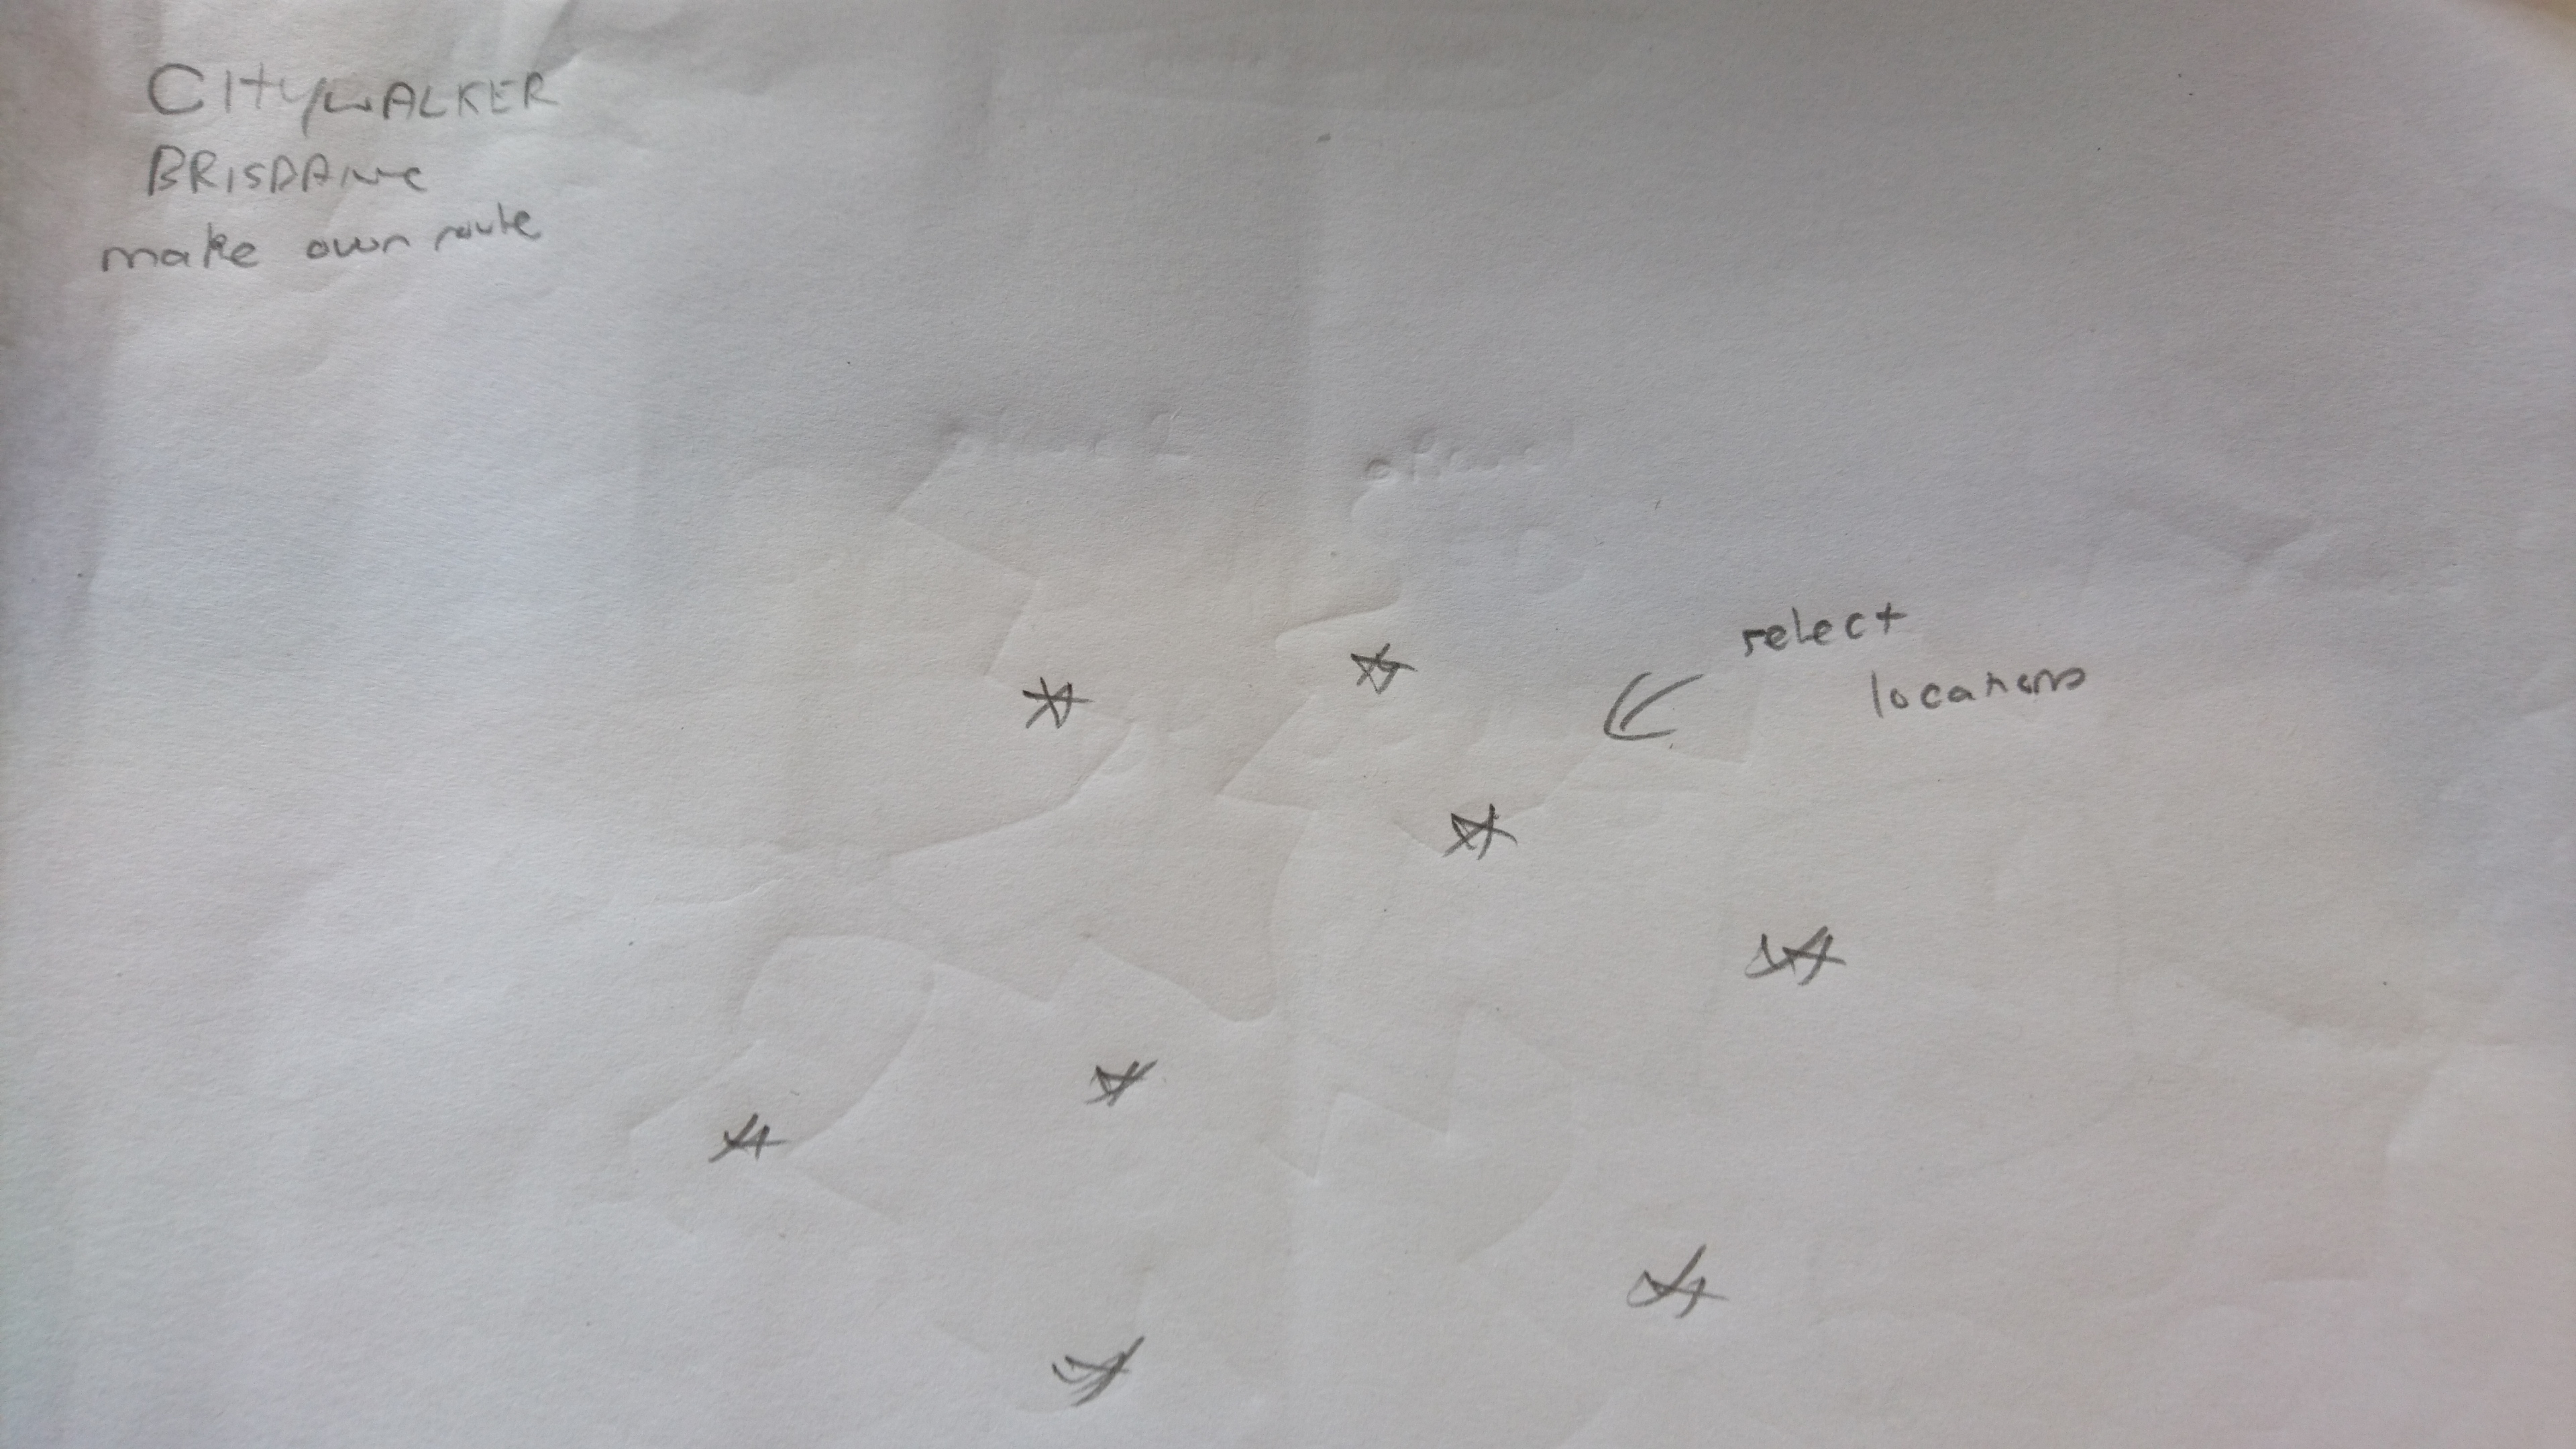 CITYWALKER
BRISBANE
make own route
select
locations